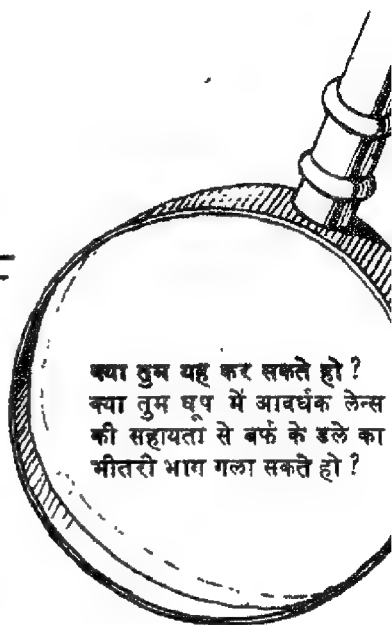 क्या तुम यह कर सकते हो ?
क्या तुम धूप में आवर्धक लेन्स
की सहायता से बर्फ के डले का
भीतरी भाग गला सकते हो ?